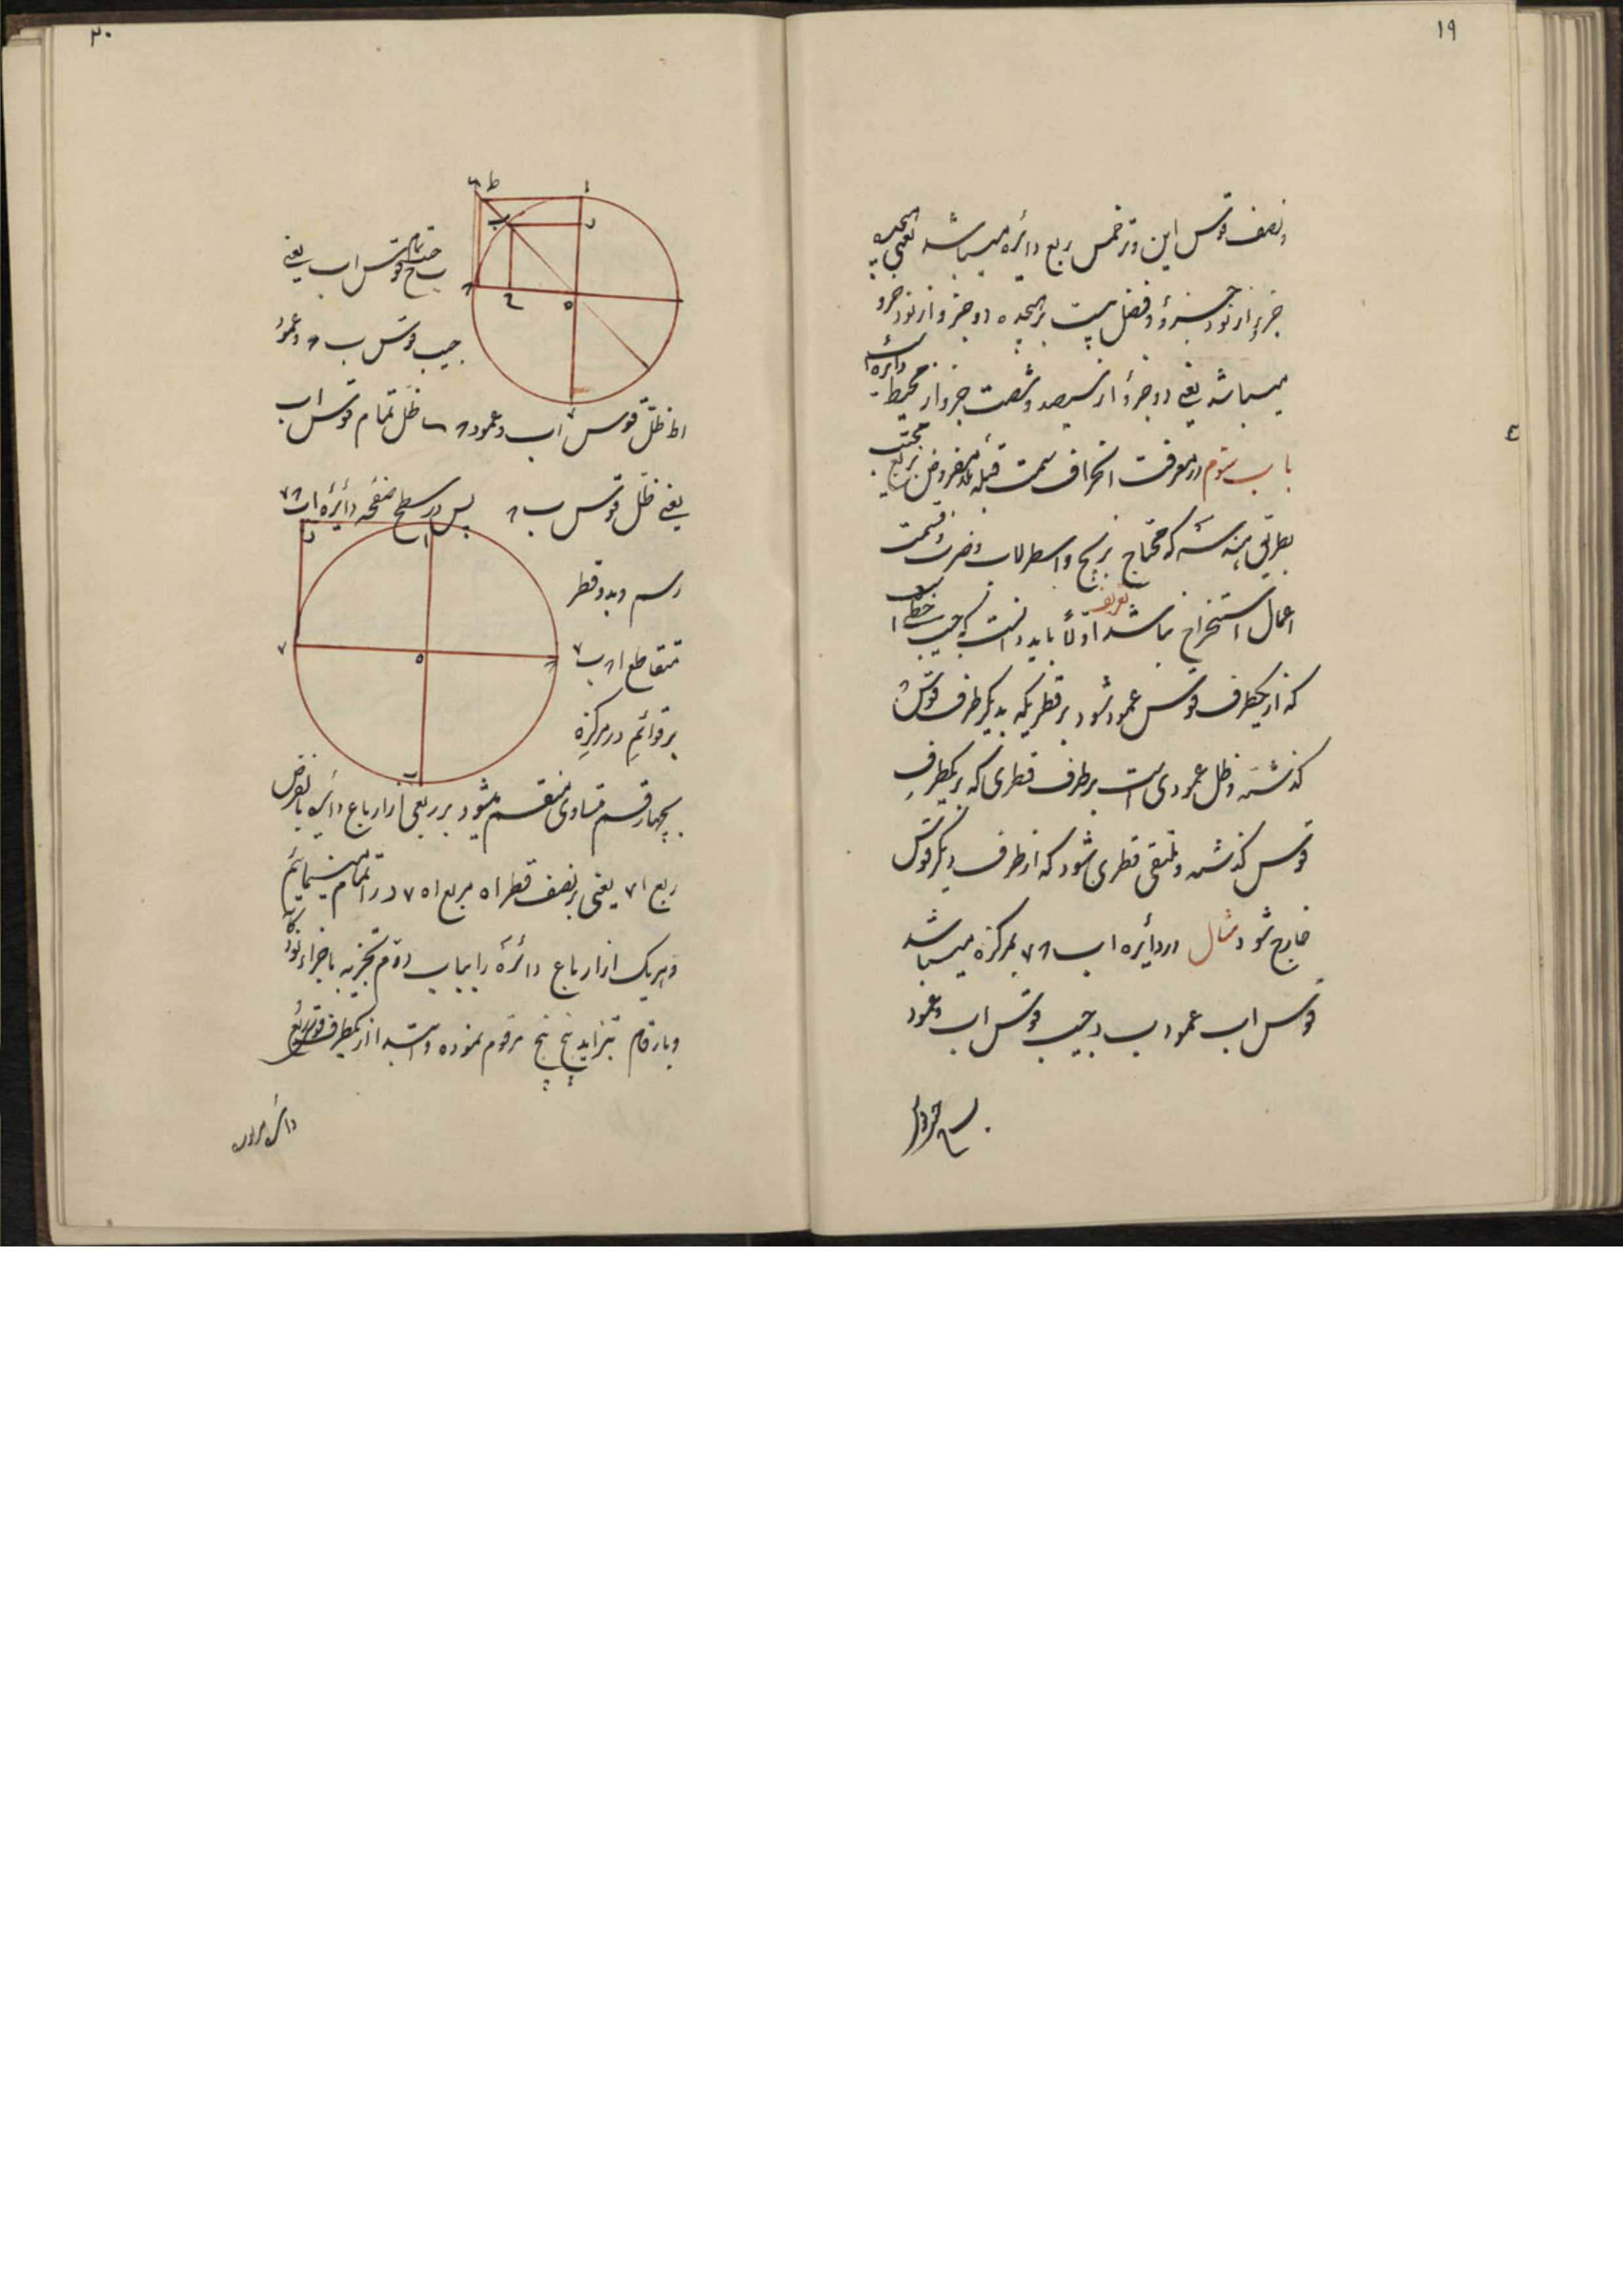 ۱۹
ونصف قوس این وتر خمس ربع دائره میباشد یعنی هیجده
جزو از نود جزو و فضل بیست بر هیجده دو جزو از نود جزو
میباشد یعنی دو جزو از سیصد و شصت جزو از محیط دائره
باب سوم در معرفت انحراف سمت قبله بلد مفروض
بطریق هندسه که محتاج بزیج و اسطرلاب و ضرب و قسمت
اعمال استخراج نباشد اولاً باید دانست که جیب خطی
تعریف
که از یکطرف قوس عمود شود بر قطریکه بدیگر طرف قوس
گذشته و ظل عمودی است بر طرف قطری که بر یکطرف
قوس گذشته و ملتقی قطری شود که از طرف دیگر قوس
خارج شود مثال در دائره اب ۷۸ بمرکز ه میباشد
قوس اب عمود ب د جیب قوس اب و عمود
۲۰
ب ح جیب تمام قوس اب یعنی
جیب قوس ب ۸ و عمود
اط ظل قوس اب و عمود ۸ ظل تمام قوس اب
یعنی ظل قوس ب ۸ پس در سطح صفحه دائره
رسم و بدو قطر
متقاطع ا ب ۷
بر قوائم در مرکز ه
بچهار قسم متساوی منقسم میشود بر ربعی از ارباع دائره بالفرض
ربع ا ۷ یعنی بر نصف قطر ا ه مربع ا ه ۷ د را تمام مینمائیم
و هریک از ارباع دائره را بباب دوم تجزیه باجزاء نود
و بارقام بتزاید پنج پنج مرقوم نموده از یکطرف قوس ربع